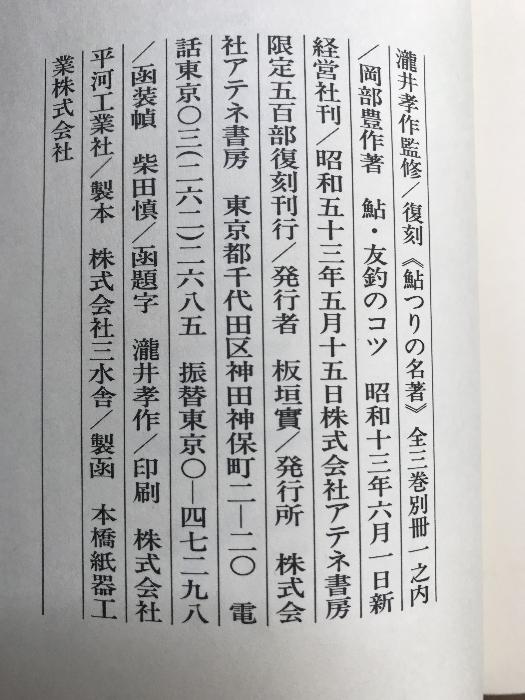 瀧井孝作監修/復刻《鮎つりの名著》全三巻別冊一之内
/岡部豊作著 鮎・友釣のコツ 昭和十三年六月一日新
経営社刊/昭和五十三年五月十五日株式会社アテネ書房
限定五百部復刻刊行/発行者 板垣實/発行所 株式会
社アテネ書房 東京都千代田区神田神保町二―二〇 電
話東京〇三(二六二)二六八五 振替東京〇―四七二九八
/函装幀 柴田慎/函題字 瀧井孝作/印刷 株式会社
平河工業社/製本 株式会社三水舎/製函 本橋紙器工
業株式会社